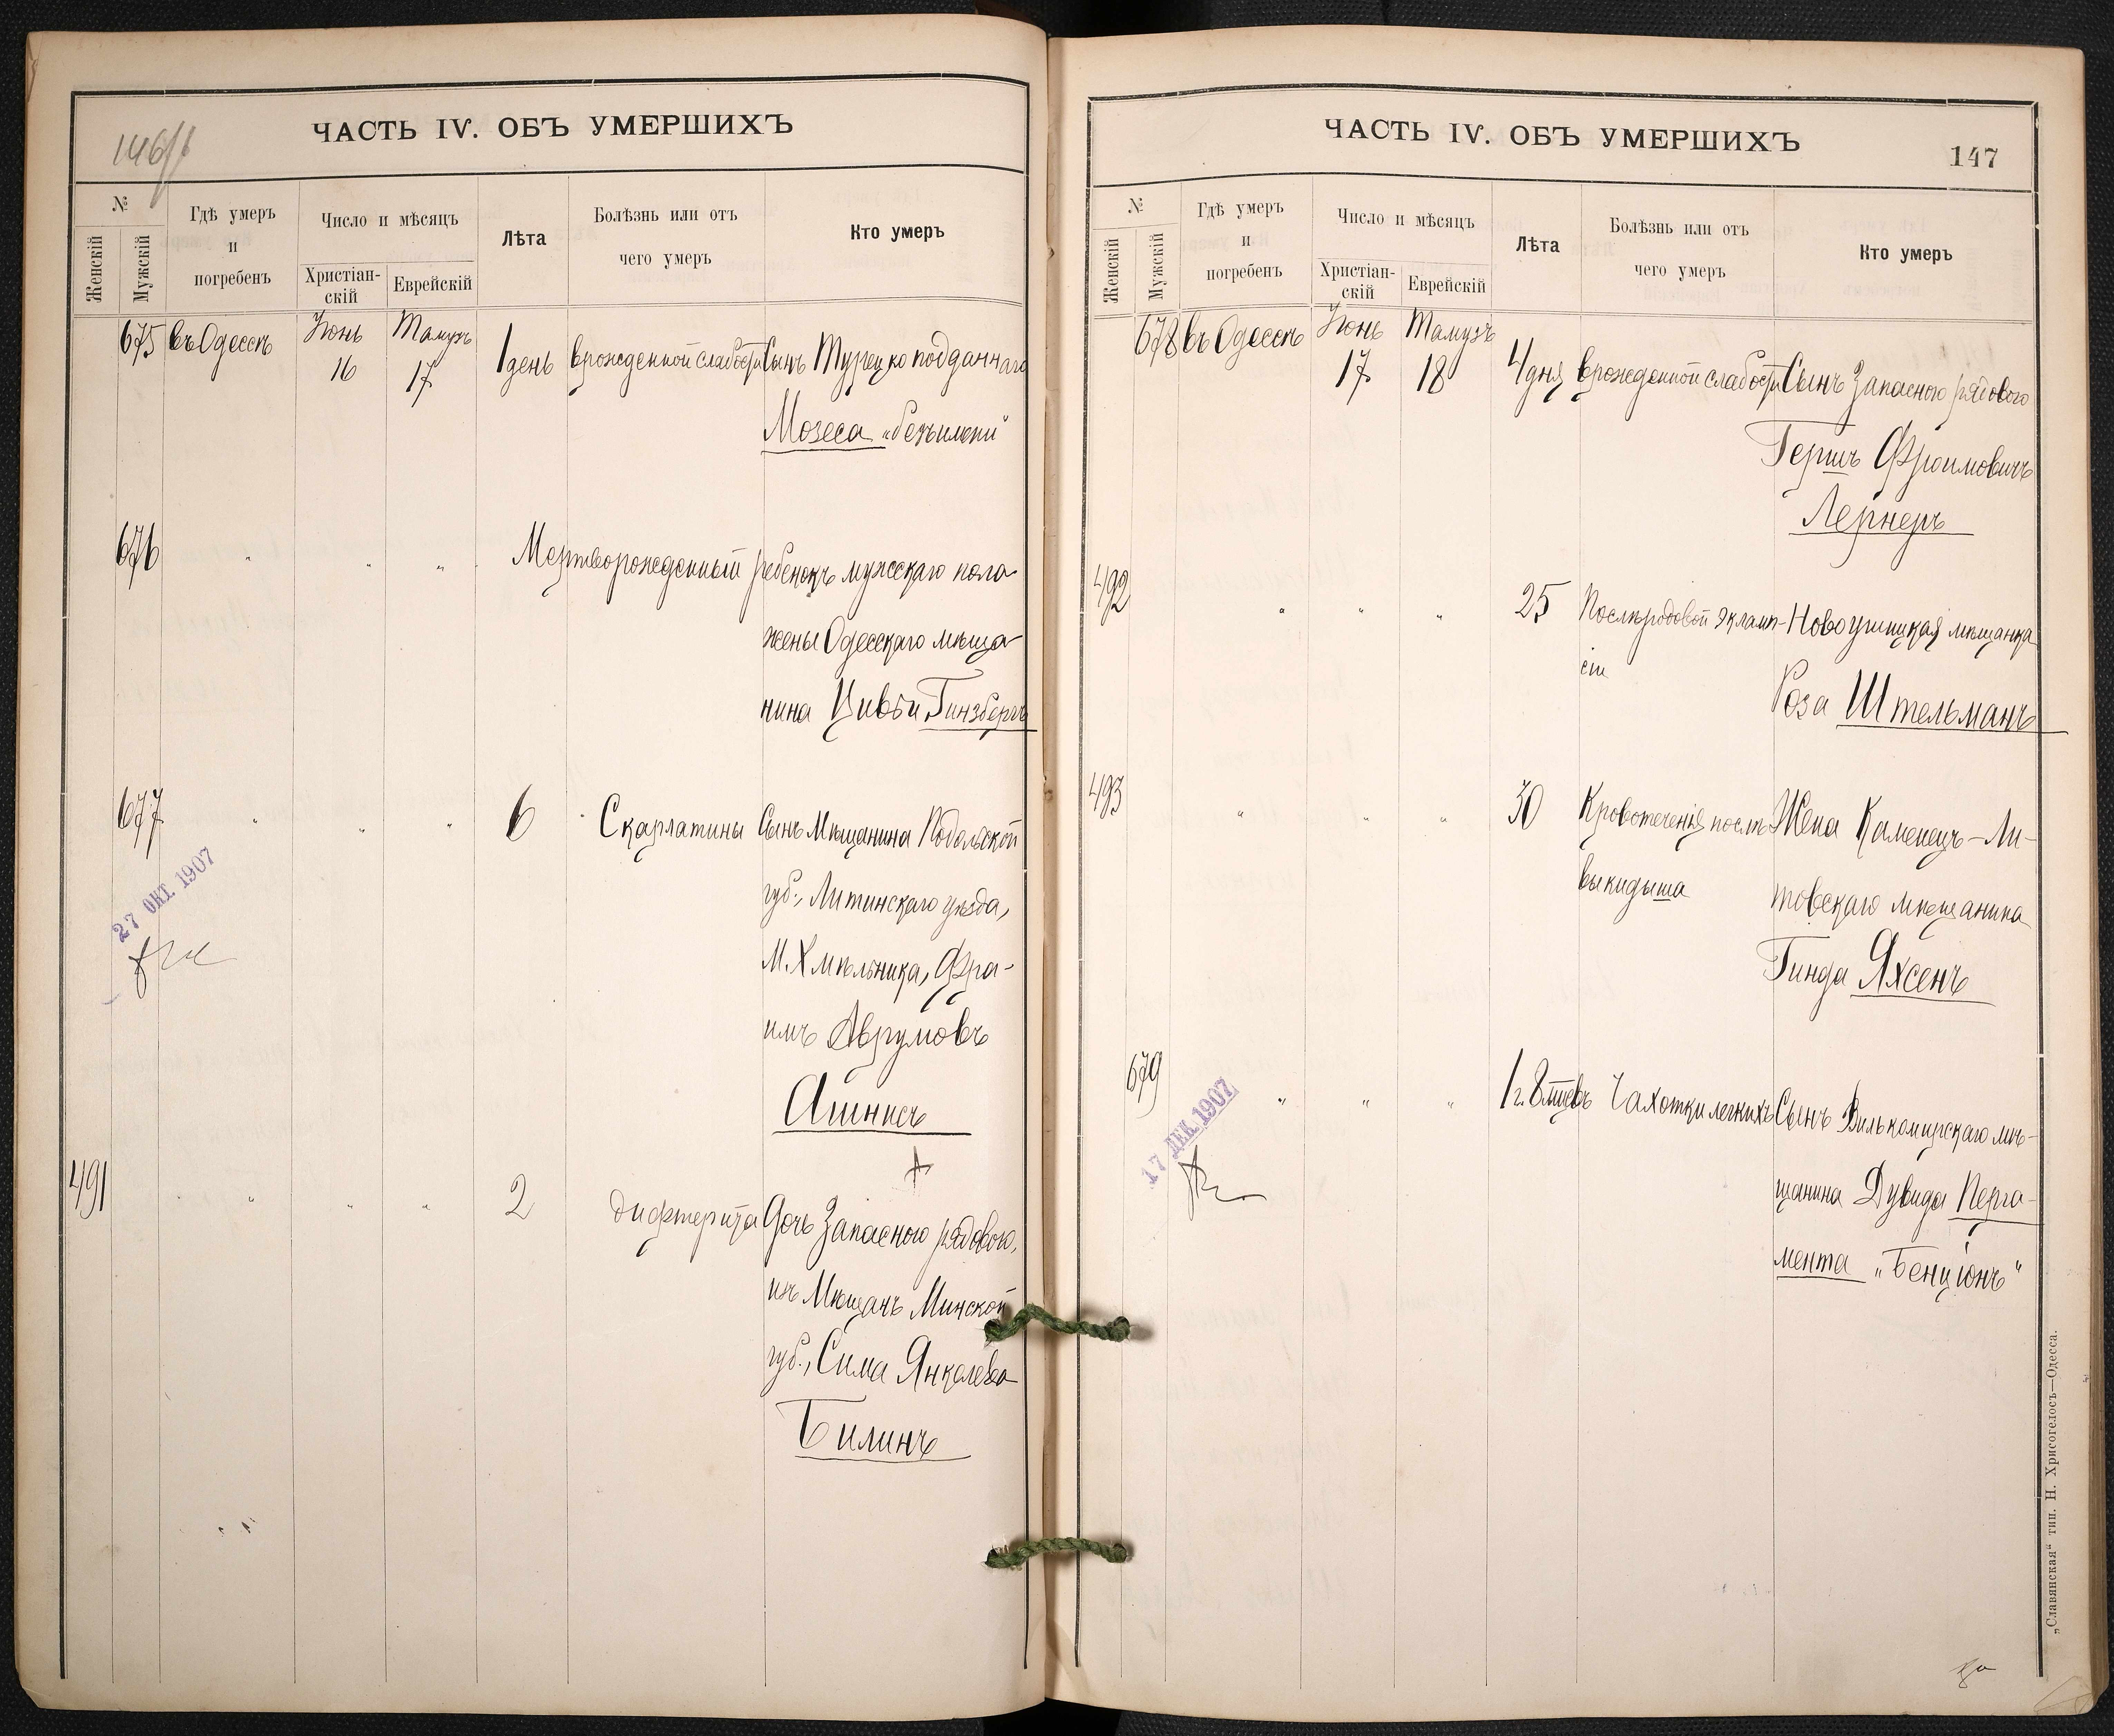 146/1
ЧАСТЬ IV. ОБЪ УМЕРШИХЪ
№
Женскій
Мужскій
Гдѣ умеръ
и
погребенъ
Число и мѣсяцъ
Христіан-
скій
Еврейскій
Лѣта
Болѣзнь или отъ
чего умеръ
Кто умеръ
675 въ Одессѣ Іюнь 16 Тамузъ 17 1 день врожденной слабости Сынъ Турецко подданнаго
Мозеса „безъимени“
676 " " " Мертворожденный ребенокъ мужескаго пола
жены Одесскаго мѣща-
нина Цивьи Гинзбергъ
677 " " " 6 Скарлатины Сынъ Мѣщанина Подольской
губ., Литинскаго уѣзда,
М. Хмѣльника, Фра-
имъ Аврумовъ
Ашнисъ
27 ОКТ. 1907
491 " " " 2 дифтерита Дочь Запасного рядового,
изъ Мѣщанъ Минской
губ., Сима Янкелева
Билинъ
ЧАСТЬ IV. ОБЪ УМЕРШИХЪ
147
№
Женскій
Мужскій
Гдѣ умеръ
и
погребенъ
Число и мѣсяцъ
Христіан-
скій
Еврейскій
Лѣта
Болѣзнь или отъ
чего умеръ
Кто умеръ
678 въ Одессѣ Іюнь 17 Тамузъ 18 4 дня врожденной слабости Сынъ Запасного рядового
Гершъ Фроимовичъ
Лернеръ
492 " " " 25 Послѣродовой эклами- Новоушицкая мѣщанка
сіи
Роза Штельманъ
493 " " " 30 Кровотеченія послѣ Жена Каменецъ-Ли-
выкидыша товскаго мѣщанина
Гинда Яхсенъ
679 " " " 1 г. 8 мцевъ Чахотки легкихъ Сынъ Вилькомирскаго мѣ-
щанина Дувида Перга-
мента „Бенціонъ“
17 ДЕК. 1907
„Славянская“ тип. Н. Хрисогелосъ—Одесса.